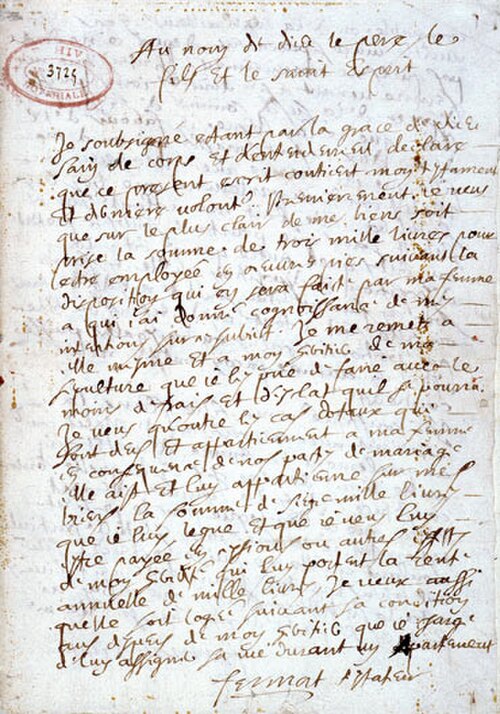 HIV
3724
Au nom de dieu le pere le
fils et le saint esperit
Je soubsigne estant par la grace de dieu
sain de corps et dentendement declare
que ce present escrit contient mon testament
et derniere volonté Premierement je veus
que sur le plus clair de mes biens soit
prise la somme de trois mille livres pour
estre employee en oeuvres pies suivant la
disposition qui en sera faiste par ma femme
a qui j'ai donné cognoissance de mes
intentions sur ce subiect Je me remets a
elle mesme et a mon heritier de ma
sepulture que je les prie de faire avec le
moins de frais et desclat quil se pourra
Je veus quoutre les cas dotaux qui
sont deus et appartienent a ma femme
en consequence de nos pactes de mariage
elle ait et luy appartienne sur mes
biens la somme de mille livres
que je luy legue et que je veus luy
estre payee en pensions ou autres
de mon heritier qui luy portent la rente
annuelle de mille livres, Je veux aussi
quelle soit logée suivant sa condition
aus despens de mon heritier que je charge
de luy assigner sa vie durant un apartement
fermat testateur